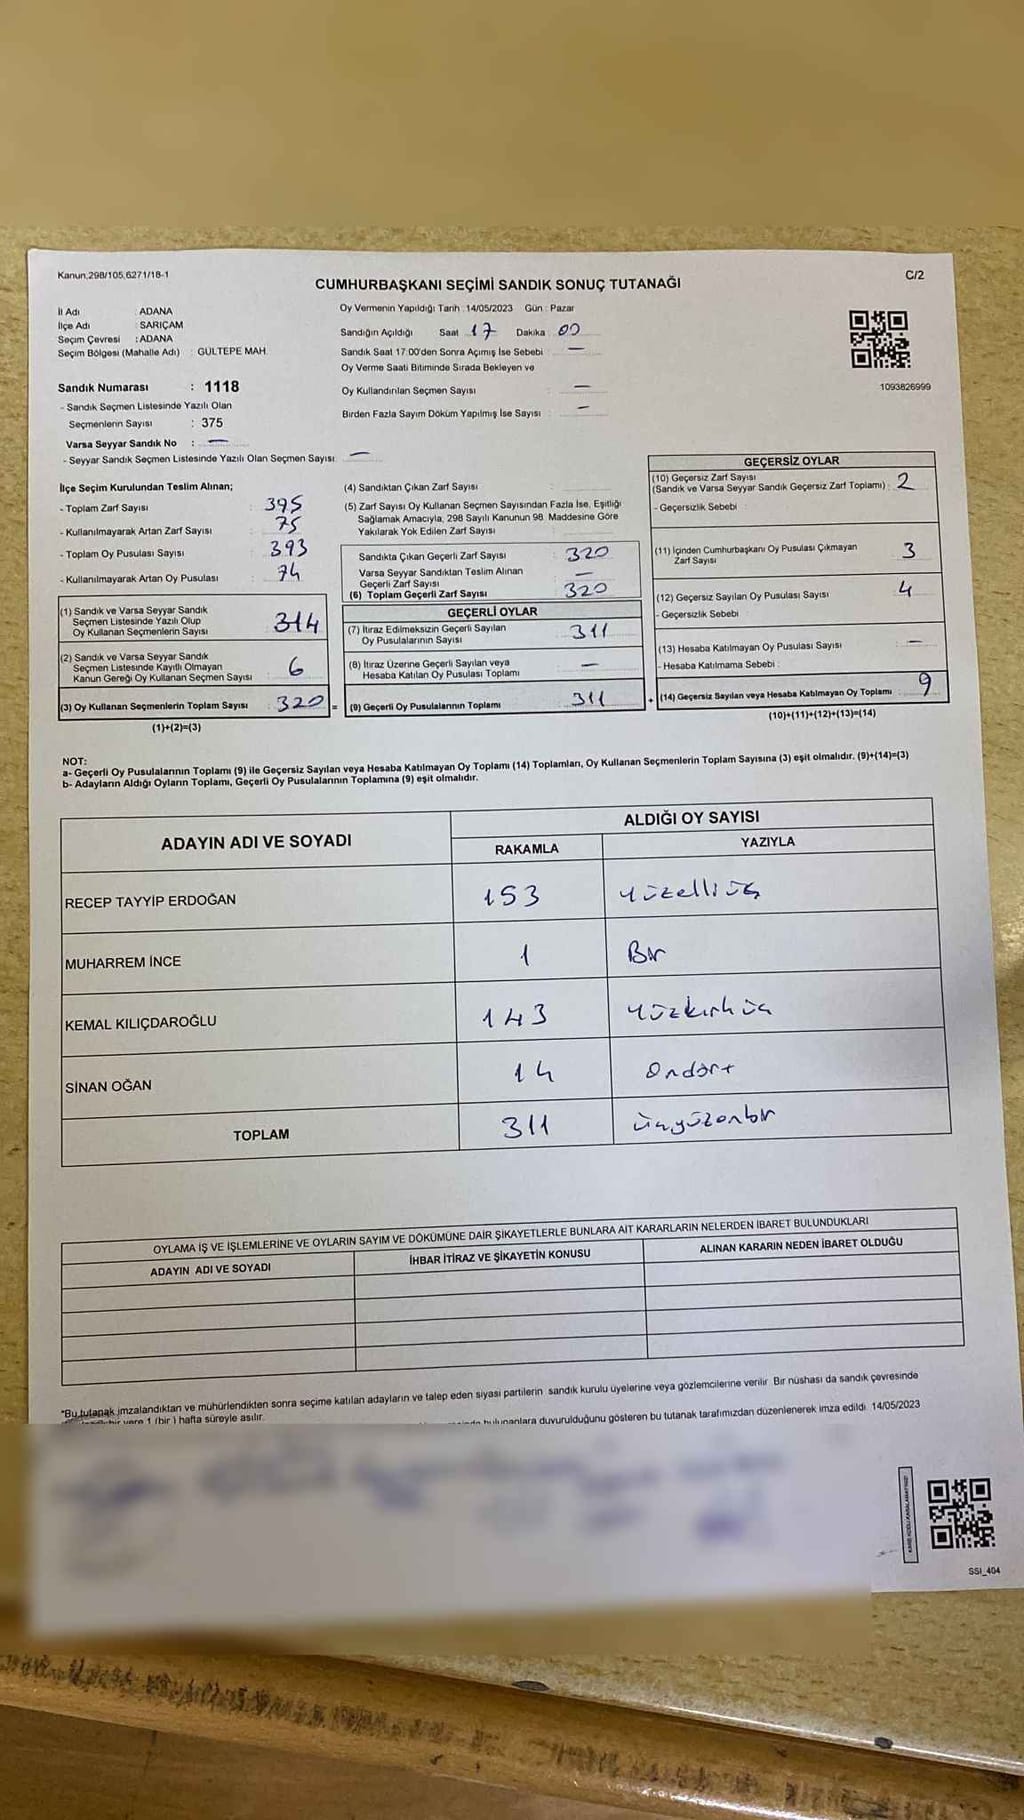 Kanun,298/105,6271/18-1
C/2
CUMHURBAŞKANI SEÇİMİ SANDIK SONUÇ TUTANAĞI
İl Adı : ADANA
İlçe Adı : SARIÇAM
Seçim Çevresi : ADANA
Seçim Bölgesi (Mahalle Adı) : GÜLTEPE MAH.
Sandık Numarası : 1118
- Sandık Seçmen Listesinde Yazılı Olan
Seçmenlerin Sayısı : 375
Varsa Seyyar Sandık No : —
- Seyyar Sandık Seçmen Listesinde Yazılı Olan Seçmen Sayısı: —
Oy Vermenin Yapıldığı Tarih : 14/05/2023 Gün : Pazar
Sandığın Açıldığı Saat 17 Dakika : 00
Sandık Saat 17:00'den Sonra Açımış İse Sebebi : —
Oy Verme Saati Bitiminde Sırada Bekleyen ve
Oy Kullandırılan Seçmen Sayısı : —
Birden Fazla Sayım Döküm Yapılmış İse Sayısı : —
1093826999
İlçe Seçim Kurulundan Teslim Alınan;
- Toplam Zarf Sayısı : 395
- Kullanılmayarak Artan Zarf Sayısı : 75
- Toplam Oy Pusulası Sayısı : 393
- Kullanılmayarak Artan Oy Pusulası : 74
(1) Sandık ve Varsa Seyyar Sandık
Seçmen Listesinde Yazılı Olup
Oy Kullanan Seçmenlerin Sayısı : 314
(2) Sandık ve Varsa Seyyar Sandık
Seçmen Listesinde Kayıtlı Olmayan
Kanun Gereği Oy Kullanan Seçmen Sayısı : 6
(3) Oy Kullanan Seçmenlerin Toplam Sayısı : 320
(1)+(2)=(3)
(4) Sandıktan Çıkan Zarf Sayısı :
(5) Zarf Sayısı Oy Kullanan Seçmen Sayısından Fazla İse, Eşitliği
Sağlamak Amacıyla, 298 Sayılı Kanunun 98. Maddesine Göre
Yakılarak Yok Edilen Zarf Sayısı :
Sandıkta Çıkan Geçerli Zarf Sayısı : 320
Varsa Seyyar Sandıktan Teslim Alınan
Geçerli Zarf Sayısı : —
(6) Toplam Geçerli Zarf Sayısı : 320
GEÇERLİ OYLAR
(7) İtiraz Edilmeksizin Geçerli Sayılan
Oy Pusulalarının Sayısı : 311
(8) İtiraz Üzerine Geçerli Sayılan veya
Hesaba Katılan Oy Pusulası Toplamı : —
= (9) Geçerli Oy Pusulalarının Toplamı : 311
GEÇERSİZ OYLAR
(10) Geçersiz Zarf Sayısı
(Sandık ve Varsa Seyyar Sandık Geçersiz Zarf Toplamı) : 2
- Geçersizlik Sebebi :
(11) İçinden Cumhurbaşkanı Oy Pusulası Çıkmayan
Zarf Sayısı : 3
(12) Geçersiz Sayılan Oy Pusulası Sayısı : 4
- Geçersizlik Sebebi :
(13) Hesaba Katılmayan Oy Pusulası Sayısı : —
- Hesaba Katılmama Sebebi :
+ (14) Geçersiz Sayılan veya Hesaba Katılmayan Oy Toplamı : 9
(10)+(11)+(12)+(13)=(14)
NOT:
a- Geçerli Oy Pusulalarının Toplamı (9) ile Geçersiz Sayılan veya Hesaba Katılmayan Oy Toplamı (14) Toplamları, Oy Kullanan Seçmenlerin Toplam Sayısına (3) eşit olmalıdır. (9)+(14)=(3)
b- Adayların Aldığı Oyların Toplamı, Geçerli Oy Pusulalarının Toplamına (9) eşit olmalıdır.
ADAYIN ADI VE SOYADI
ALDIĞI OY SAYISI
RAKAMLA YAZIYLA
RECEP TAYYİP ERDOĞAN 153 Yüzelliüç
MUHARREM İNCE 1 Bir
KEMAL KILIÇDAROĞLU 143 Yüzkırküç
SİNAN OĞAN 14 Ondört
TOPLAM 311 üçyüzonbir
OYLAMA İŞ VE İŞLEMLERİNE VE OYLARIN SAYIM VE DÖKÜMÜNE DAİR ŞİKAYETLERLE BUNLARA AİT KARARLARIN NELERDEN İBARET BULUNDUKLARI
ADAYIN ADI VE SOYADI İHBAR İTİRAZ VE ŞİKAYETİN KONUSU ALINAN KARARIN NEDEN İBARET OLDUĞU
*Bu tutanak imzalandıktan ve mühürlendikten sonra seçime katılan adayların ve talep eden siyasi partilerin sandık kurulu üyelerine veya gözlemcilerine verilir. Bir nüshası da sandık çevresinde
yere 1 (bir ) hafta süreyle asılır.
bulunanlara duyurulduğunu gösteren bu tutanak tarafımızdan düzenlenerek imza edildi. 14/05/2023
SSI_404